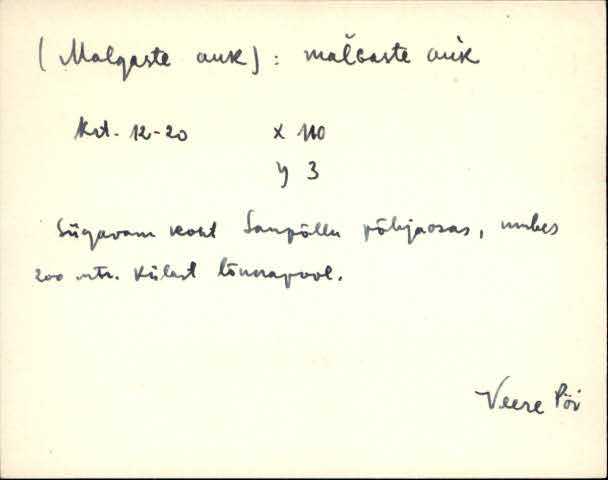 (Malgaste auk) : maĺGaste aúk
Krt. 12-20 x 110
y 3
Sügavam koht Sanpõllu põhjaosas, umbes
200 mtr. külast lõunapool.
Veere Pöi